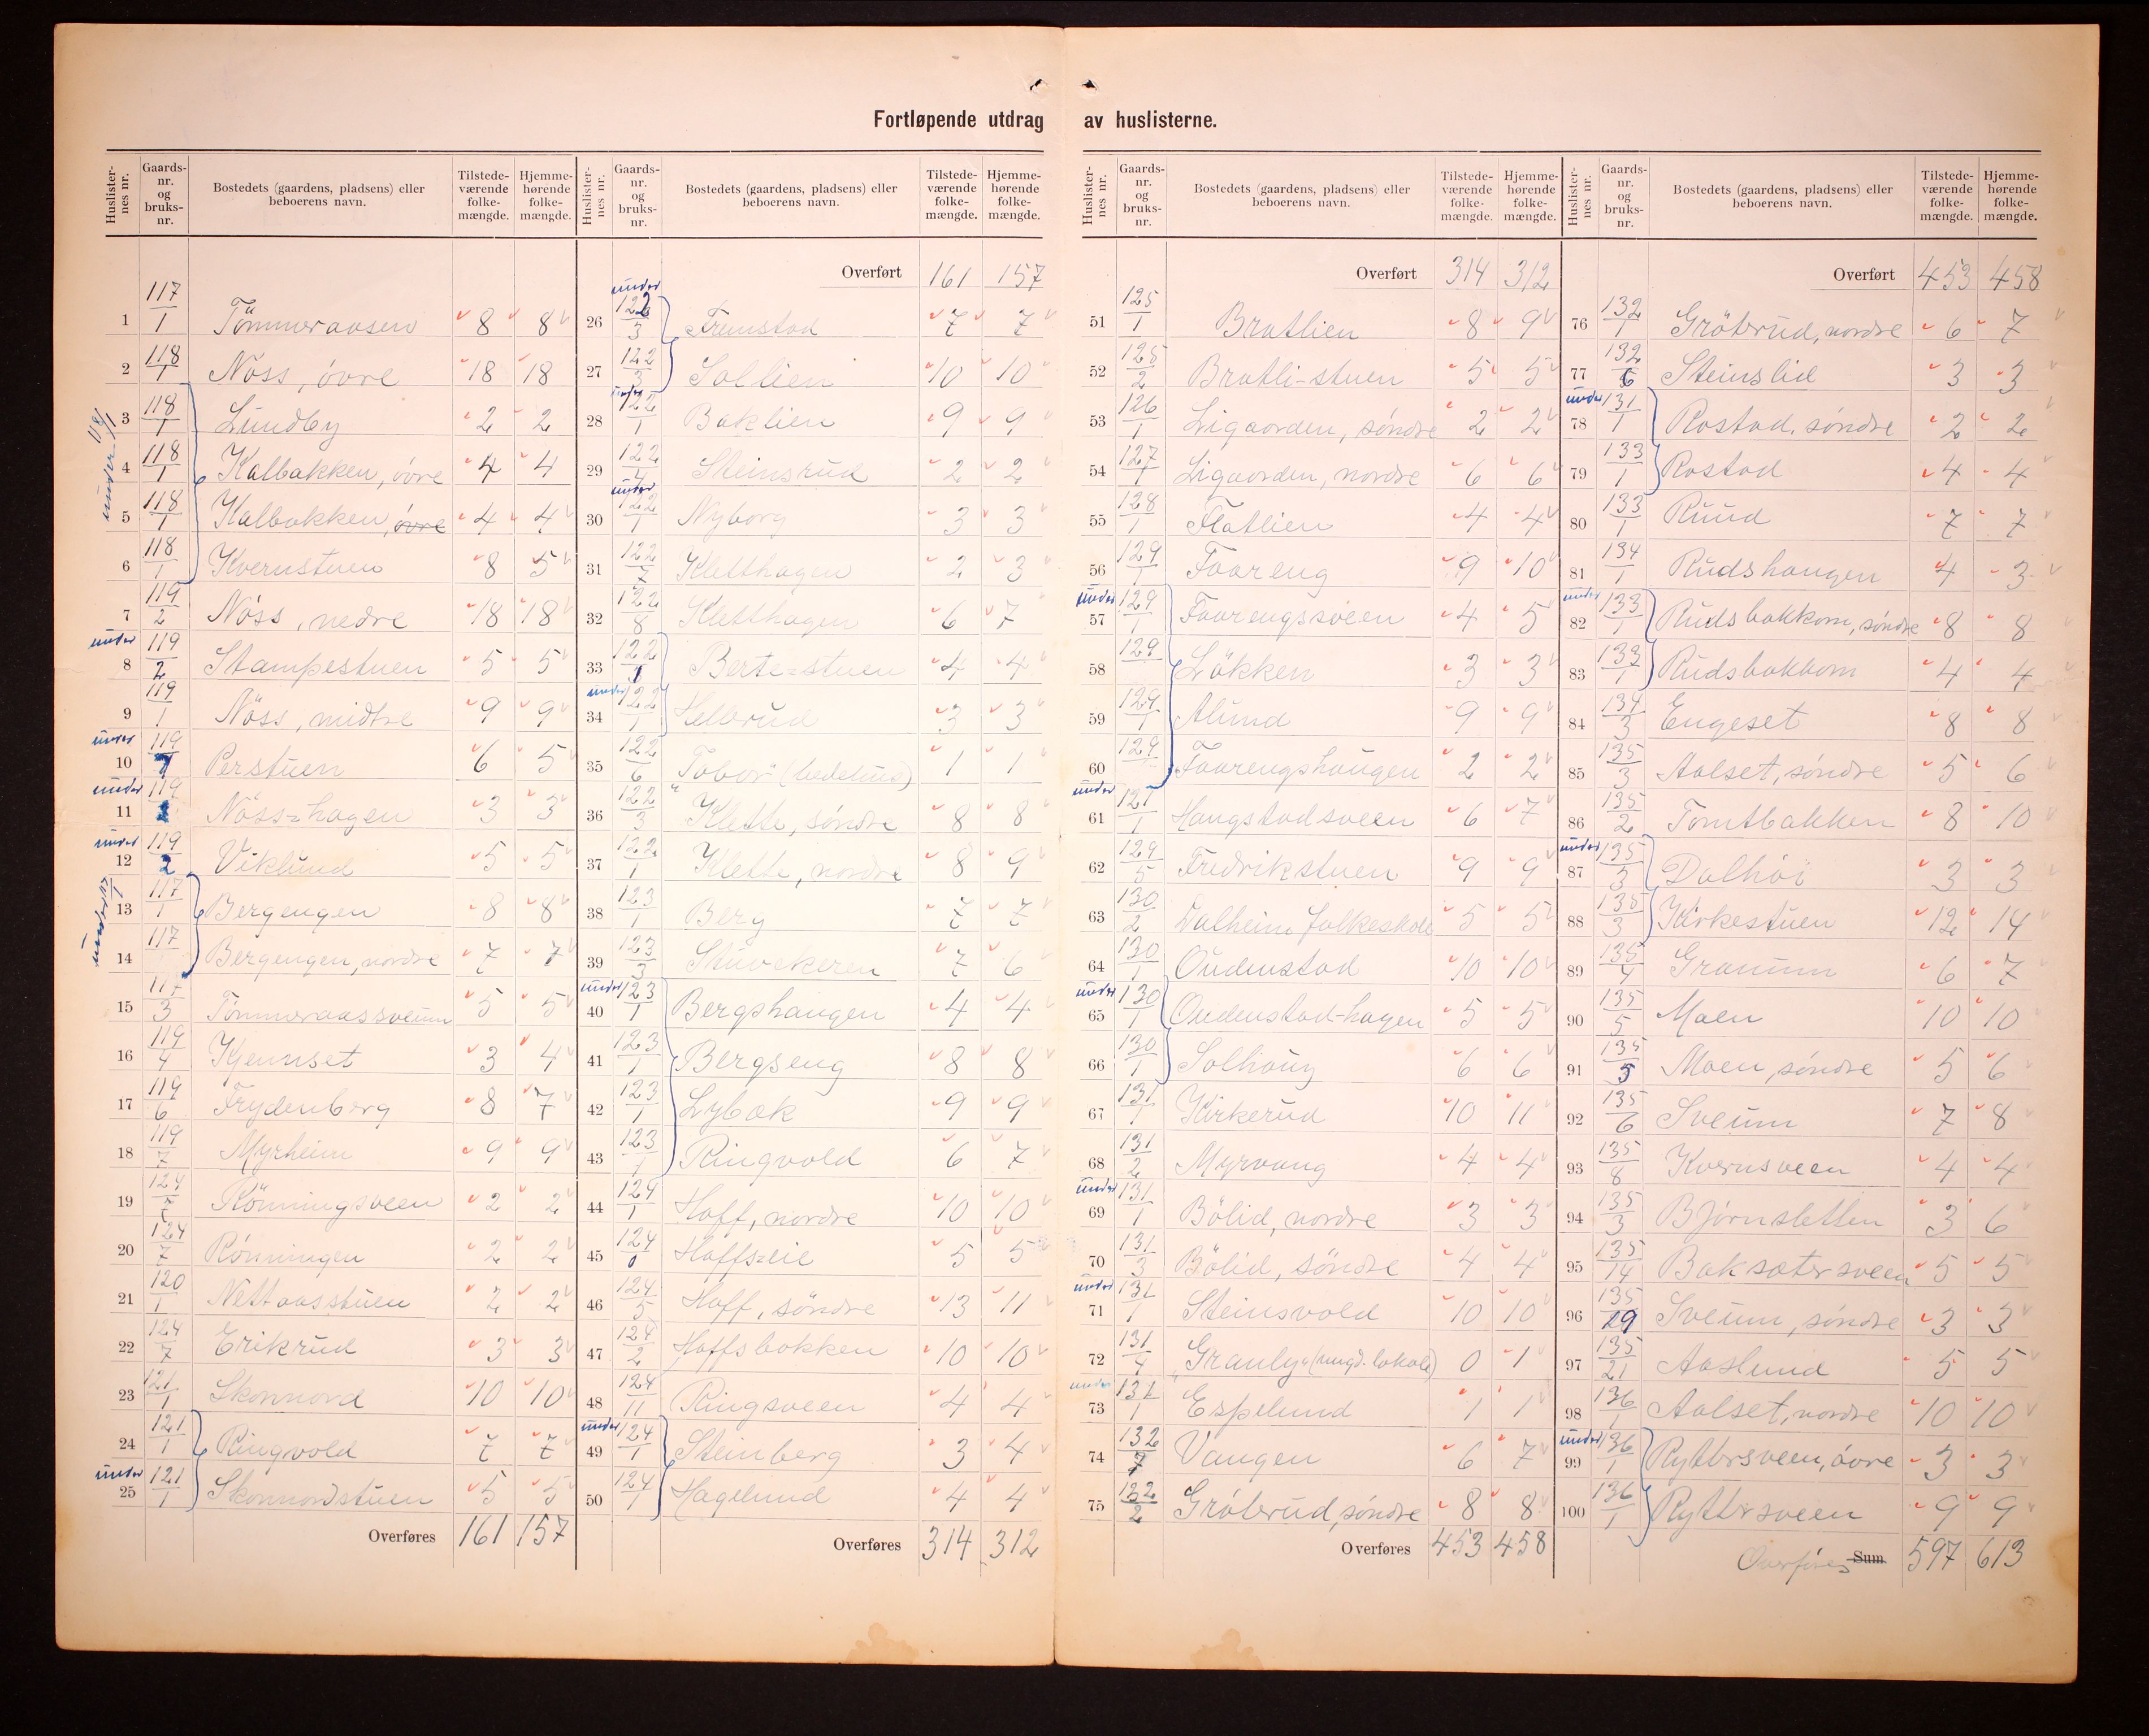 Fortløpende utdrag av huslisterne.
Huslisternes nr. Gaardsnr. og bruksnr. Bostedets (gaardens, pladsens) eller beboerens navn. Tilstedeværende folkemængde. Hjemmehørende folkemængde.
1 117/1 Tömmeraasen 8 8
2 118/1 Nöss, övre 18 18
under 118/1
3 118/1 Lundby 2 2
4 118/1 Kalbakken, övre 4 4
5 118/1 Kalbakken, övre 4 4
6 118/1 Kvernstuen 8 5
7 119/2 Nöss, nedre 18 18
under
8 119/2 Stampestuen 5 5
9 119/1 Nöss, midtre 9 9
under
10 119 Perstuen 6 5
under
11 119 Nöss-hagen 3 3
under
12 119/2 Viklund 5 5
under 117/1
13 117/1 Bergengen 8 8
14 117 Bergengen, nordre 7 7
15 117/3 Tömmeraassveum 5 5
16 119/4 Kjennset 3 4
17 119/6 Frydenberg 8 7
18 119/7 Myrheim 9 9
19 124 Rönningsveen 2 2
20 124/7 Rönningen 2 2
21 120/1 Nettaasstuen 2 2
22 124/7 Erikrud 3 3
23 121/1 Skonnord 10 10
24 121/1 Ringvold 7 7
under
25 121/1 Skonnordstuen 5 5
Overføres 161 157
Huslisternes nr. Gaardsnr. og bruksnr. Bostedets (gaardens, pladsens) eller beboerens navn. Tilstedeværende folkemængde. Hjemmehørende folkemængde.
Overført 161 157
under
26 122/3 Fremstad 7 7
27 122/3 Sollien 10 10
under
28 122/1 Baklien 9 9
29 122/4 Steinsrud 2 2
under
30 122/1 Nyborg 3 3
31 122/7 Kletthagen 2 3
32 122/8 Kletthagen 6 7
33 122/1 Berte-stuen 4 4
under
34 122/1 Selbrud 3 3
35 122/6 "Tabor" (bedehus) 1 1
36 122/3 Klette, søndre 8 8
37 122/1 Klette, nordre 8 9
38 123/1 Berg 7 7
39 123/3 Stuvekeren 7 6
under
40 123/1 Bergshaugen 4 4
41 123/1 Bergseng 8 8
42 123/1 Lybæk 9 9
43 123/1 Ringvold 6 7
44 124/1 Hoff, nordre 10 10
45 124/6 Hoffseie 5 5
46 124/5 Hoff, søndre 13 11
47 124/2 Hoffsbakken 10 10
48 124/11 Ringsveen 4 4
under
49 124/1 Steinberg 3 4
50 124/1 Hagelund 4 4
Overføres 314 312
Huslisternes nr. Gaardsnr. og bruksnr. Bostedets (gaardens, pladsens) eller beboerens navn. Tilstedeværende folkemængde. Hjemmehørende folkemængde.
Overført 314 312
51 125/1 Bratlien 8 9
52 125/2 Bratli-stuen 5 5
53 126/1 Ligaarden, søndre 2 2
54 127/1 Ligaarden, nordre 6 6
55 128/1 Flatlien 4 4
56 129/1 Faareng 9 10
under
57 129/1 Faarengsveen 4 5
58 129 Lökken 3 3
59 129/1 Alund 9 9
60 129 Faarengshaugen 2 2
under
61 127/1 Haugstadsveen 6 7
62 129/5 Fredrikstuen 9 9
63 130/2 Dalheim folkeskole 5 5
64 130/1 Oudenstad 10 10
under
65 130/1 Oudenstad-hagen 5 5
66 130/1 Solhaug 6 6
67 131/1 Kirkerud 10 11
68 131/2 Myrvang 4 4
under
69 131/1 Bölid, nordre 3 3
70 131/3 Bölid, søndre 4 4
under
71 131/1 Steinsvold 10 10
72 131/4 "Granly" (ungd. lokale) 0 1
under
73 131/1 Espelund 1 1
74 132/7 Vangen 6 7
75 132/2 Gröterud, søndre 8 8
Overføres 453 458
Huslisternes nr. Gaardsnr. og bruksnr. Bostedets (gaardens, pladsens) eller beboerens navn. Tilstedeværende folkemængde. Hjemmehørende folkemængde.
Overført 453 458
76 132/1 Gröterud, nordre 6 7
77 132/6 Steinslid 3 3
under
78 131/1 Rostad, søndre 2 2
79 133/1 Rostad 4 4
80 133/1 Ruud 7 7
81 134/1 Rudshaugen 4 3
under
82 133/1 Rudsbakkom, søndre 8 8
83 133/1 Rudsbakkom 4 4
84 134/3 Engeset 8 8
85 135/3 Aalset, søndre 5 6
86 135/2 Tomtbakken 8 10
under
87 135/3 Dalhöi 3 3
88 135/3 Kirkestuen 12 14
89 135/4 Granum 6 7
90 135/5 Moen 10 10
91 135/5 Moen, søndre 5 6
92 135/6 Sveum 7 8
93 135/8 Kvernsveen 4 4
94 135/3 Bjørnsletten 3 6
95 135/14 Baksætersveen 5 5
96 135/19 Sveum, søndre 3 3
97 135/21 Aaslund 5 5
98 136/1 Aalset, nordre 10 10
under
99 136/1 Ryttersveen, övre 3 3
100 136/1 Ryttersveen 9 9
Overføres Sum 597 613